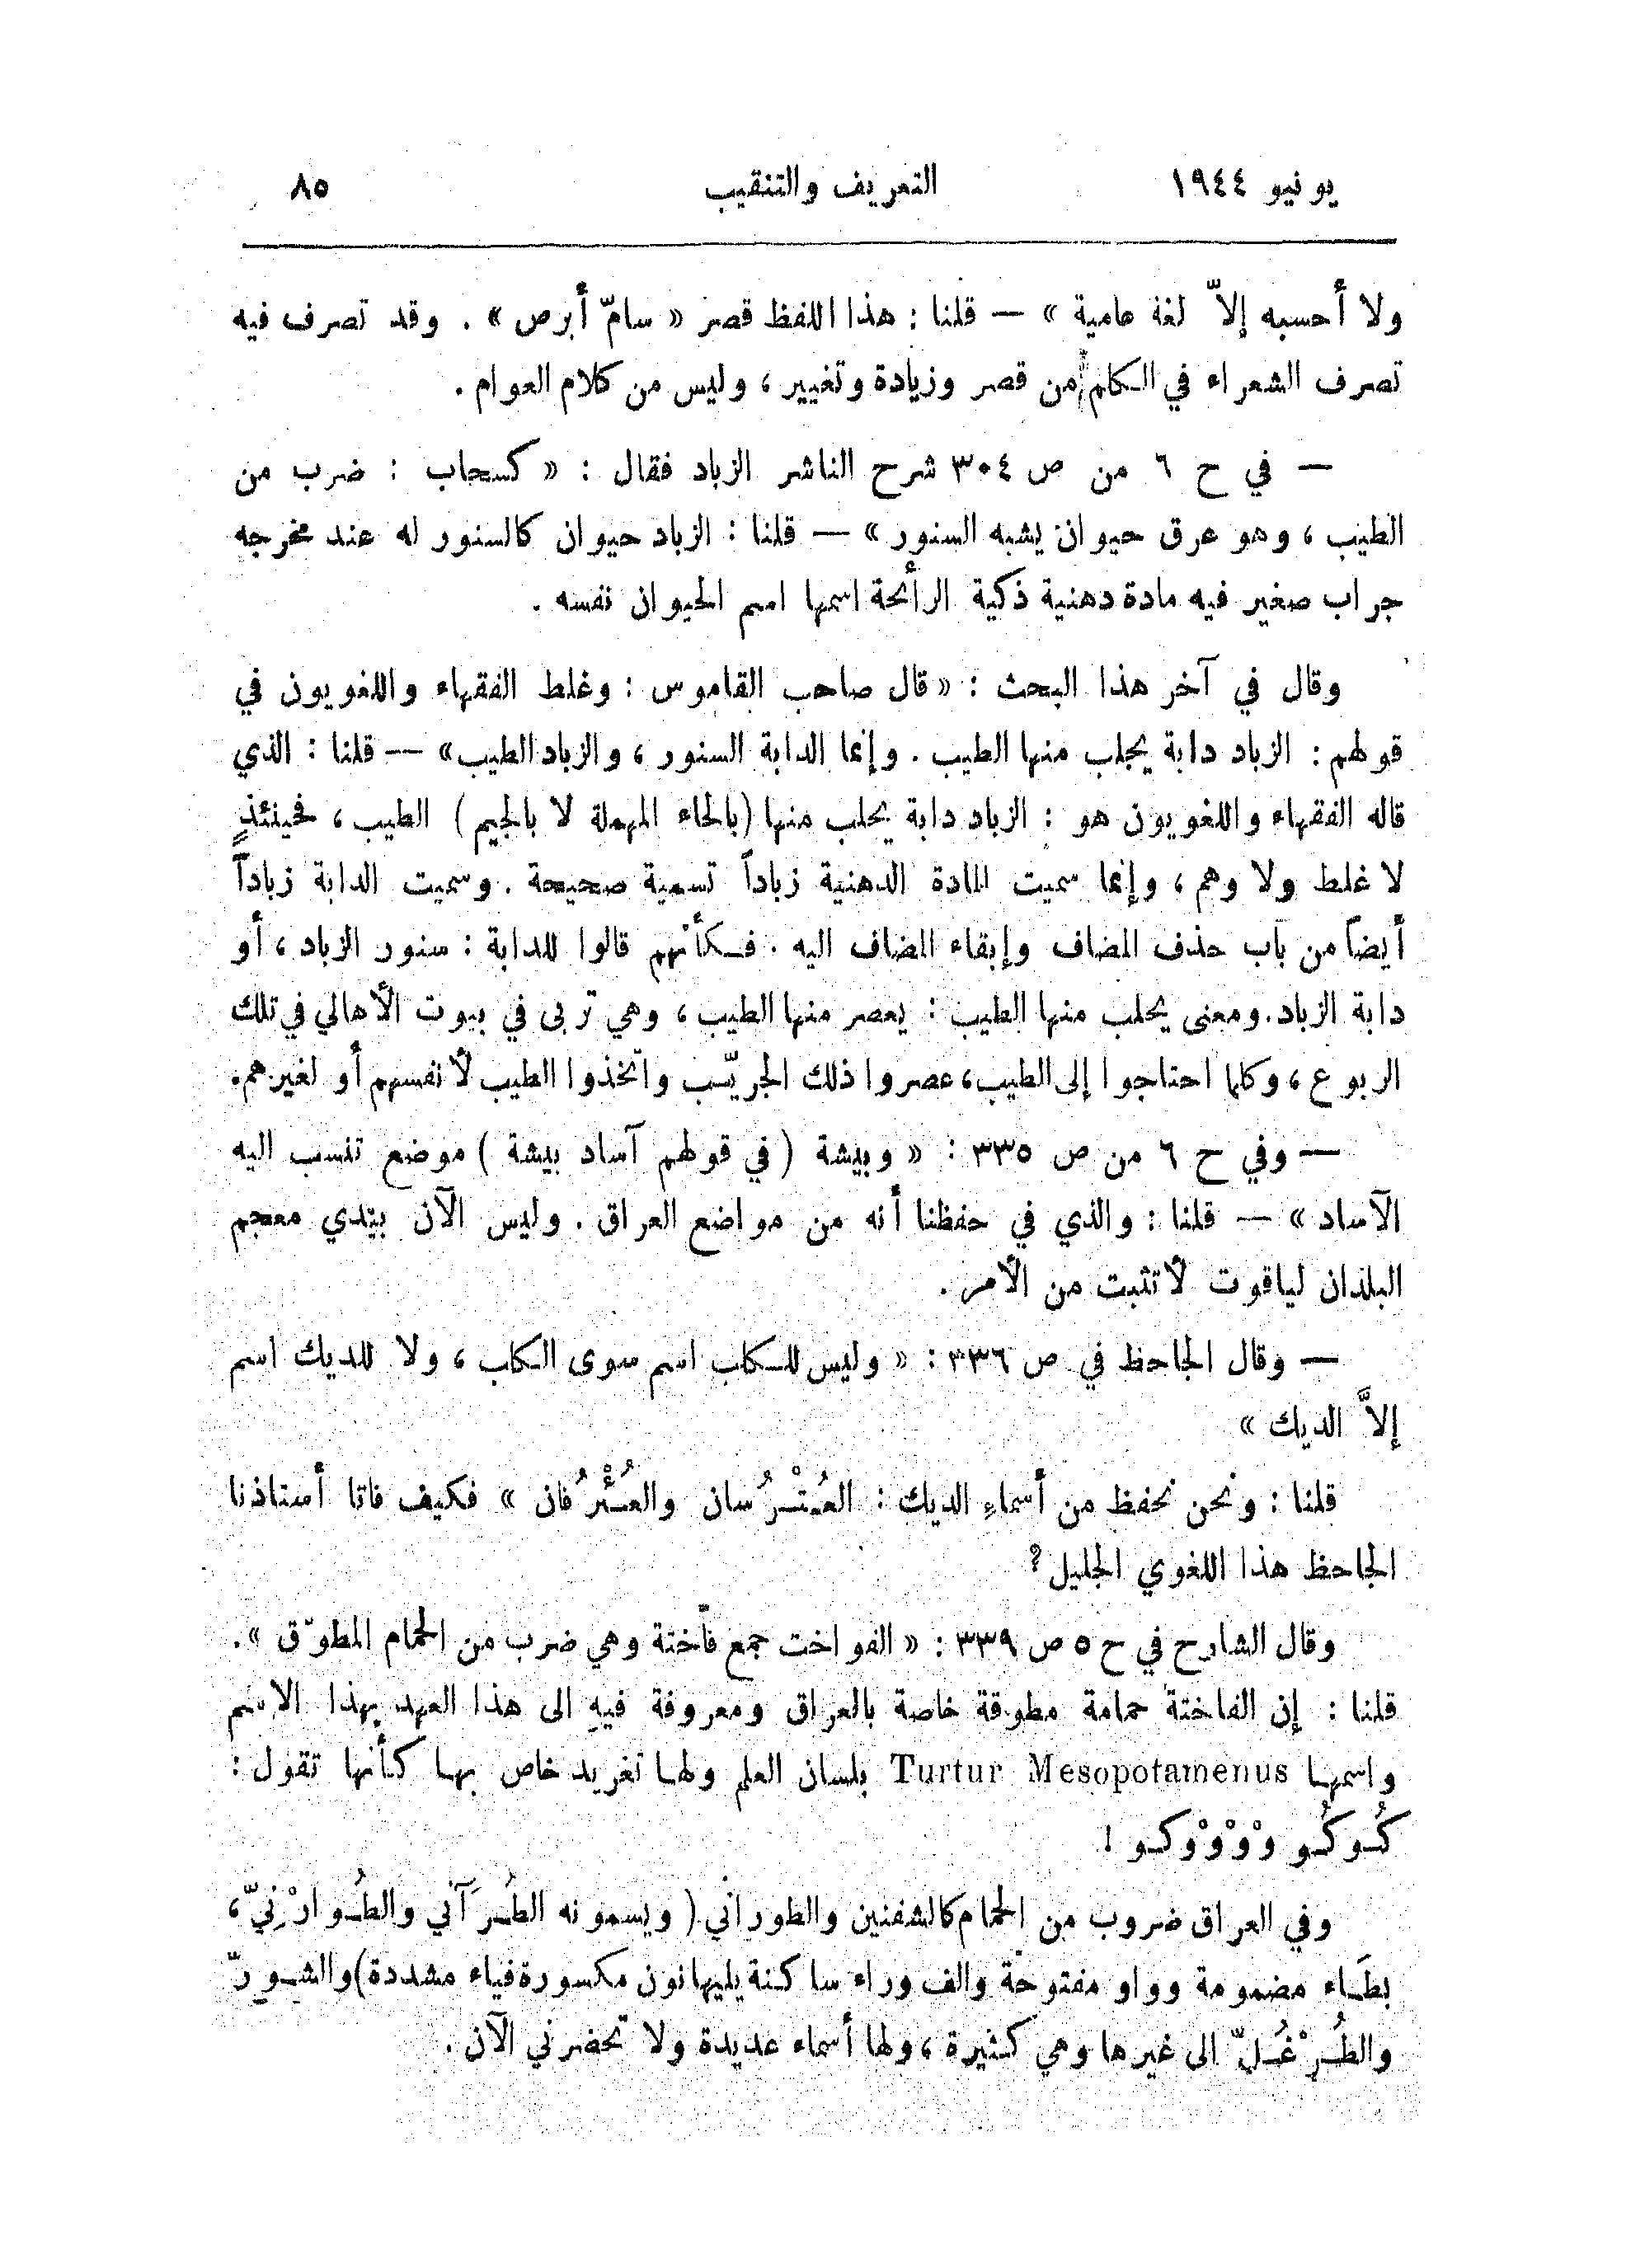 يونيو ١٩٤٤ التعريف والتنقيب ٨٥
ولا أحسبه إلاّ لغة عامية » — قلنا : هذا اللفظ قصر « سامّ أبرص » . وقد تصرف فيه
تصرف الشعراء في الكلم من قصر وزيادة وتغيير ، وليس من كلام العوام .
— في ح ٦ من ص ٣٠٤ شرح الناشر الزباد فقال : « كسحاب : ضرب من
الطيب ، وهو عرق حيوان يشبه السنور » — قلنا : الزباد حيوان كالسنور له عند مخرجه
جراب صغير فيه مادة دهنية ذكية الرائحة اسمها اسم الحيوان نفسه .
وقال في آخر هذا البحث : « قال صاحب القاموس : وغلط الفقهاء واللغويون في
قولهم : الزباد دابة يجلب منها الطيب . وإنما الدابة السنور ، والزباد الطيب » — قلنا : الذي
قاله الفقهاء واللغويون هو : الزباد دابة يحلب منها (بالحاء المهملة لا بالجيم) الطيب ، فحينئذٍ
لا غلط ولا وهم ، وإنما سميت المادة الدهنية زباداً تسمية صحيحة . وسميت الدابة زباداً
أيضاً من باب حذف المضاف وإبقاء المضاف اليه . فكأنهم قالوا للدابة : سنور الزباد ، أو
دابة الزباد . ومعنى يحلب منها الطيب : يعصر منها الطيب ، وهي تربى في بيوت الأهالي في تلك
الربوع ، وكلما احتاجوا إلى الطيب ، عصروا ذلك الجريّب واتخذوا الطيب لأنفسهم أو لغيرهم .
— وفي ح ٦ من ص ٣٣٥ : « وبيشة ( في قولهم آساد بيشة ) موضع تنسب اليه
الآساد » — قلنا : والذي في حفظنا أنه من مواضع العراق . وليس الآن بيدي معجم
البلدان لياقوت لأتثبت من الأمر .
— وقال الجاحظ في ص ٣٣٦ : « وليس للكلب اسم سوى الكلب ، ولا للديك اسم
إلاَّ الديك »
قلنا : ونحن نحفظ من أسماءِ الديك : العُتْرُسان والعُتْرُفان » فكيف فاتا أستاذنا
الجاحظ هذا اللغوي الجليل ؟
وقال الشارح في ح ٥ ص ٣٣٩ : « الفواخت جمع فاختة وهي ضرب من الحمام المطوّق » .
قلنا : إن الفاختة حمامة مطوقة خاصة بالعراق ومعروفة فيهِ الى هذا العهد بهذا الاسم
واسمها Turtur Mesopotamenus بلسان العلم ولها تغريد خاص بها كأنها تقول :
كُوكُو وْوْوْوكو !
وفي العراق ضروب من الحمام كالشفنين والطوراني ( ويسمونه الطُرَآني والطُوارْنِيّ ،
بطَاء مضمومة وواو مفتوحة والف وراء ساكنة يليها نون مكسورة فياء مشددة ) والشورّ
والطُرْغُلّ الى غيرها وهي كثيرة ، ولها أسماء عديدة ولا تحضرني الآن .